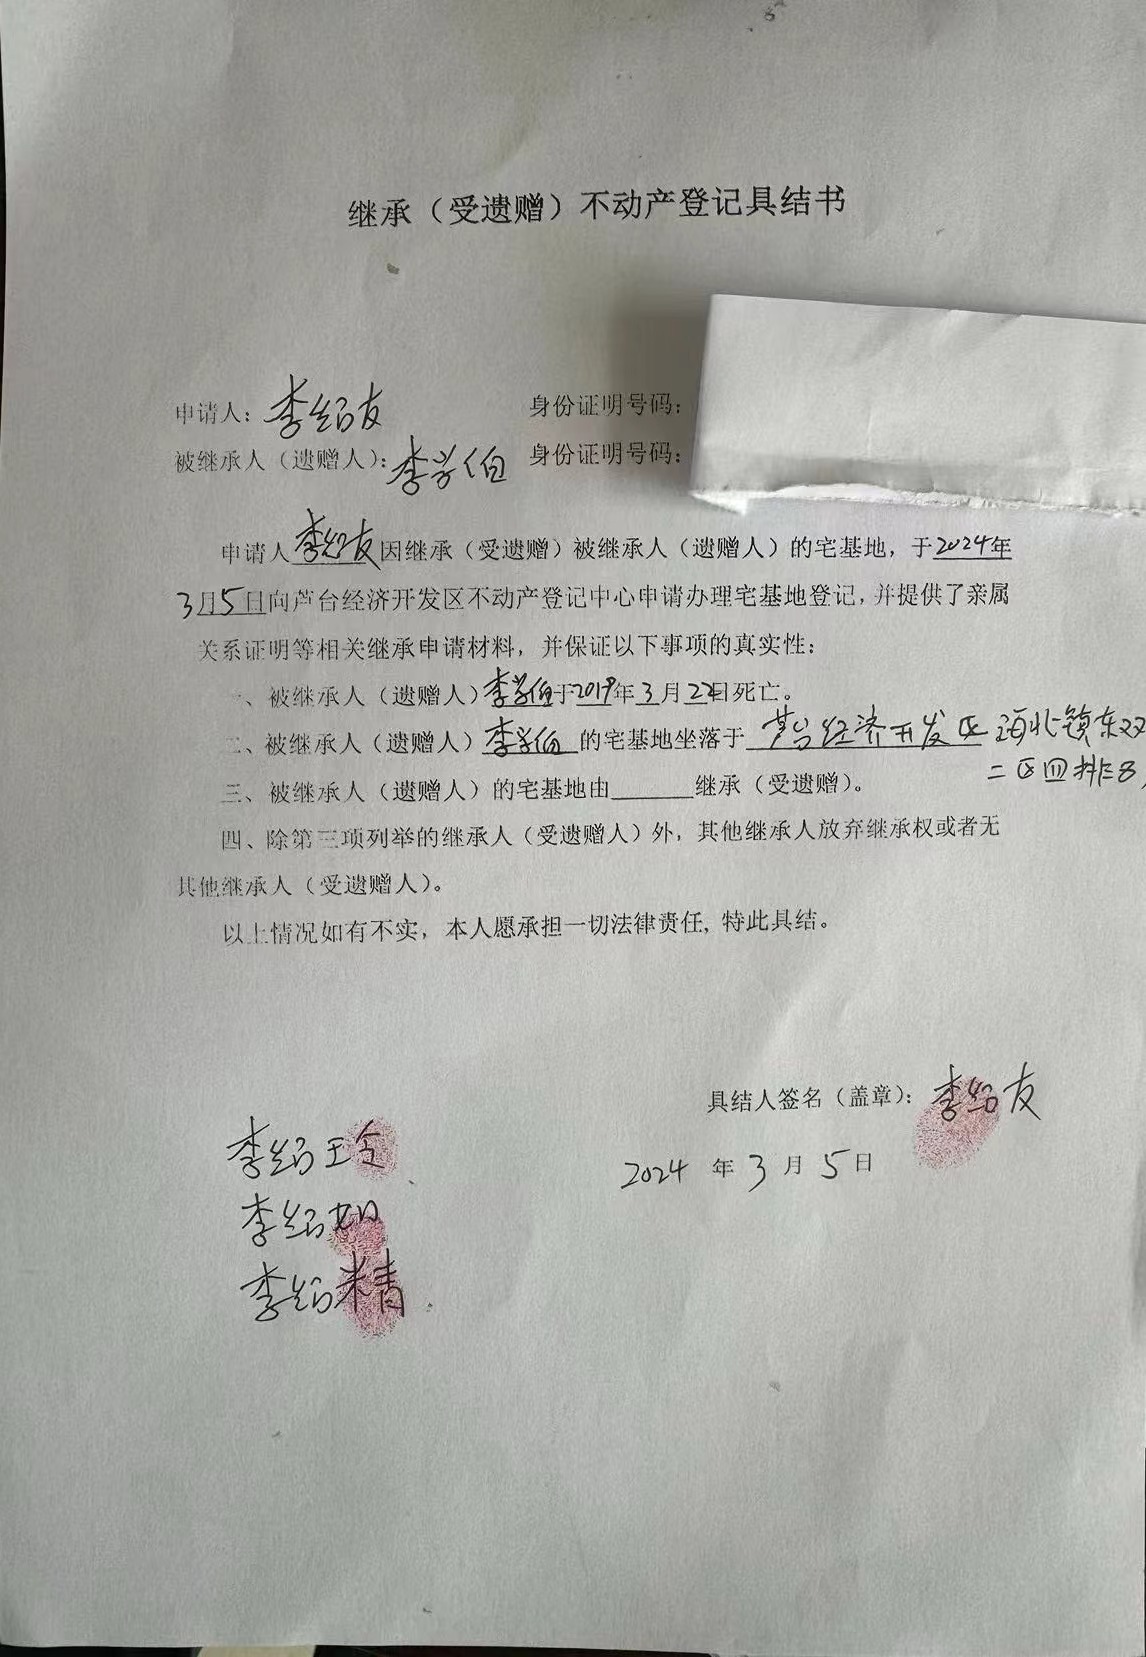 继承（受遗赠）不动产登记具结书
申请人：李绍友 身份证明号码：
被继承人（遗赠人）：李学伯 身份证明号码：
申请人李绍友因继承（受遗赠）被继承人（遗赠人）的宅基地，于2024年
3月5日向芦台经济开发区不动产登记中心申请办理宅基地登记，并提供了亲属
关系证明等相关继承申请材料，并保证以下事项的真实性：
一、被继承人（遗赠人）李学伯于2019年3月22日死亡。
二、被继承人（遗赠人）李学伯的宅基地坐落于芦台经济开发区海北镇东双
二区四排3
三、被继承人（遗赠人）的宅基地由______继承（受遗赠）。
四、除第三项列举的继承人（受遗赠人）外，其他继承人放弃继承权或者无
其他继承人（受遗赠人）。
以上情况如有不实，本人愿承担一切法律责任，特此具结。
具结人签名（盖章）：李绍友
2024年3月5日
李绍玲
李绍如
李绍精